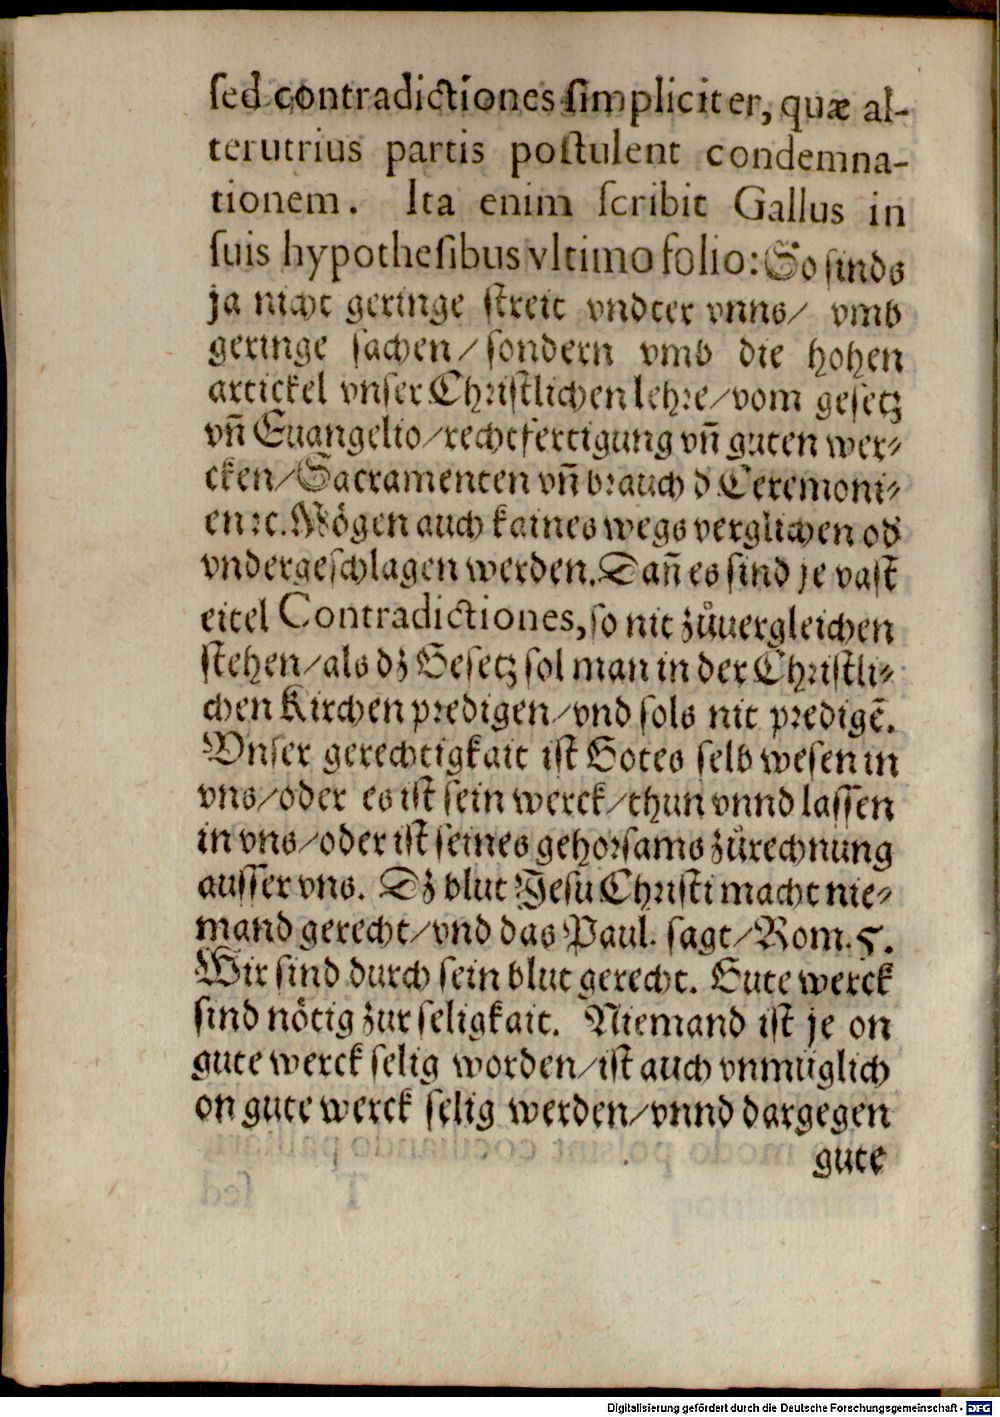 ſed contradictiones ſimpliciter, quæ al-
terutrius partis poſtulent condemna-
tionem. Ita enim ſcribit Gallus in
ſuis hypotheſibus vltimo folio: So ſinds
ja nicht geringe ſtreit vndter vnns/ vmb
geringe ſachen/ ſondern vmb die hohen
artickel vnſer Chriſtlichen lehre/ vom geſetz
vñ Euangelio/ rechtfertigung vñ guten wer-
cken/ Sacramenten vñ brauch d̕ Ceremoni-
en ꝛc. Mögen auch kaines wegs verglichen od̕
vndergeſchlagen werden. Dañ es ſind je vaſt
eitel Contradictiones, ſo nit zůuergleichen
ſtehen/ als dz Geſetz ſol man in der Chriſtli-
chen Kirchen predigen/ vnd ſols nit predigẽ.
Vnſer gerechtigkait iſt Gotes ſelb weſen in
vns/ oder es iſt ſein werck/ thun vnnd laſſen
in vns/ oder iſt ſeines gehorſams zůrechnung
auſſer vns. Dz blut Jeſu Chriſti macht nie-
mand gerecht/ vnd das Paul. ſagt/ Rom. 5.
Wir ſind durch ſein blut gerecht. Gute werck
ſind nötig zur ſeligkait. Niemand iſt je on
gute werck ſelig worden/ iſt auch vnmüglich
on gute werck ſelig werden/ vnnd dargegen
gute
Digitalisierung gefördert durch die Deutsche Forschungsgemeinschaft - DFG